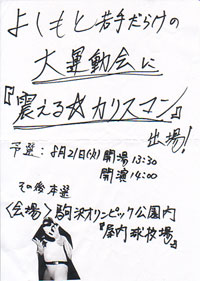 よしもと若手だらけの
大運動会に
『震える☆カリスマン』
出場!
予選:8月21日(火)開場13:30
開演14:00
その後本選
〈会場〉駒沢オリンピック公園内
『屋内球技場』